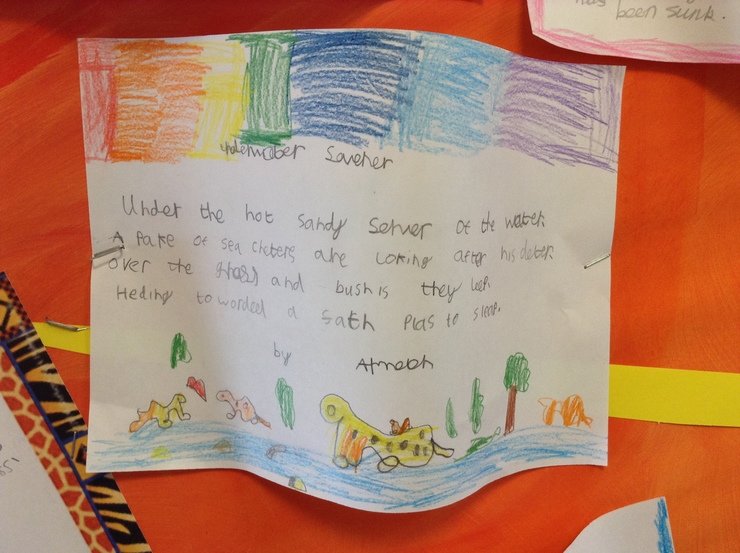 has been sunk.
underwater Saveher
Under the hot Sandy Server of the water.
A Pare of sea creters are Loking after his deter.
over the grass and bush is they
Heding to worded a Sath Plas to sleap.
by